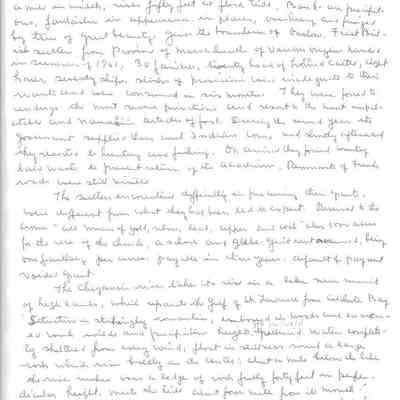 a mile in width, rises fifty feet at flood tide. Banks are precipit-
ous, fantastic in appearance in places, overhung and fringed
by trees of great beauty, gives the township of Onslow. First Brit-
ish settlers from Province of Massachusetts of various origins landed
in summer of 1761, 30 families, twenty head of horned cattle, eight
horses, seventy sheep. Stock of provisions were inadequate to their
wants and were consumed in six months. They were forced to
undergo the most severe privations and resort to the most unpal-
atable and articles of food. During the second year the
government supplied them with Indian corn, and shortly afterward
they resorted to hunting and fishing. On arrival they found country
laid waste to prevent return of the Acadians. Remnants of French
roads were still visible
The settlers encountered difficulty in procuring their grants.
were different from what they has been led to expect. Reserved to the
crown "all mines of gold, silver, lead, copper and coal" also 1000 acres
for the use of the church, a school and glebe. Quit rent being
one farthing per acre payable in three years. default of payment
voided grant.
The Chiganois river takes its rise in a lake near summit
of high lands, which separate the Gulf of St. Lawrence from Cobequid Bay.
Situation is strikingly romantic, embosomed in woods and
by rocks and precipitous heights. water complete-
ly sheltered from every wind, float in stillness round a large
rock which rises boldly in the centre: about a mile below the lake
the river rushes over a ledge of rock fully forty feet in perpen-
dicular height, meets the tide about four miles from its mouth.